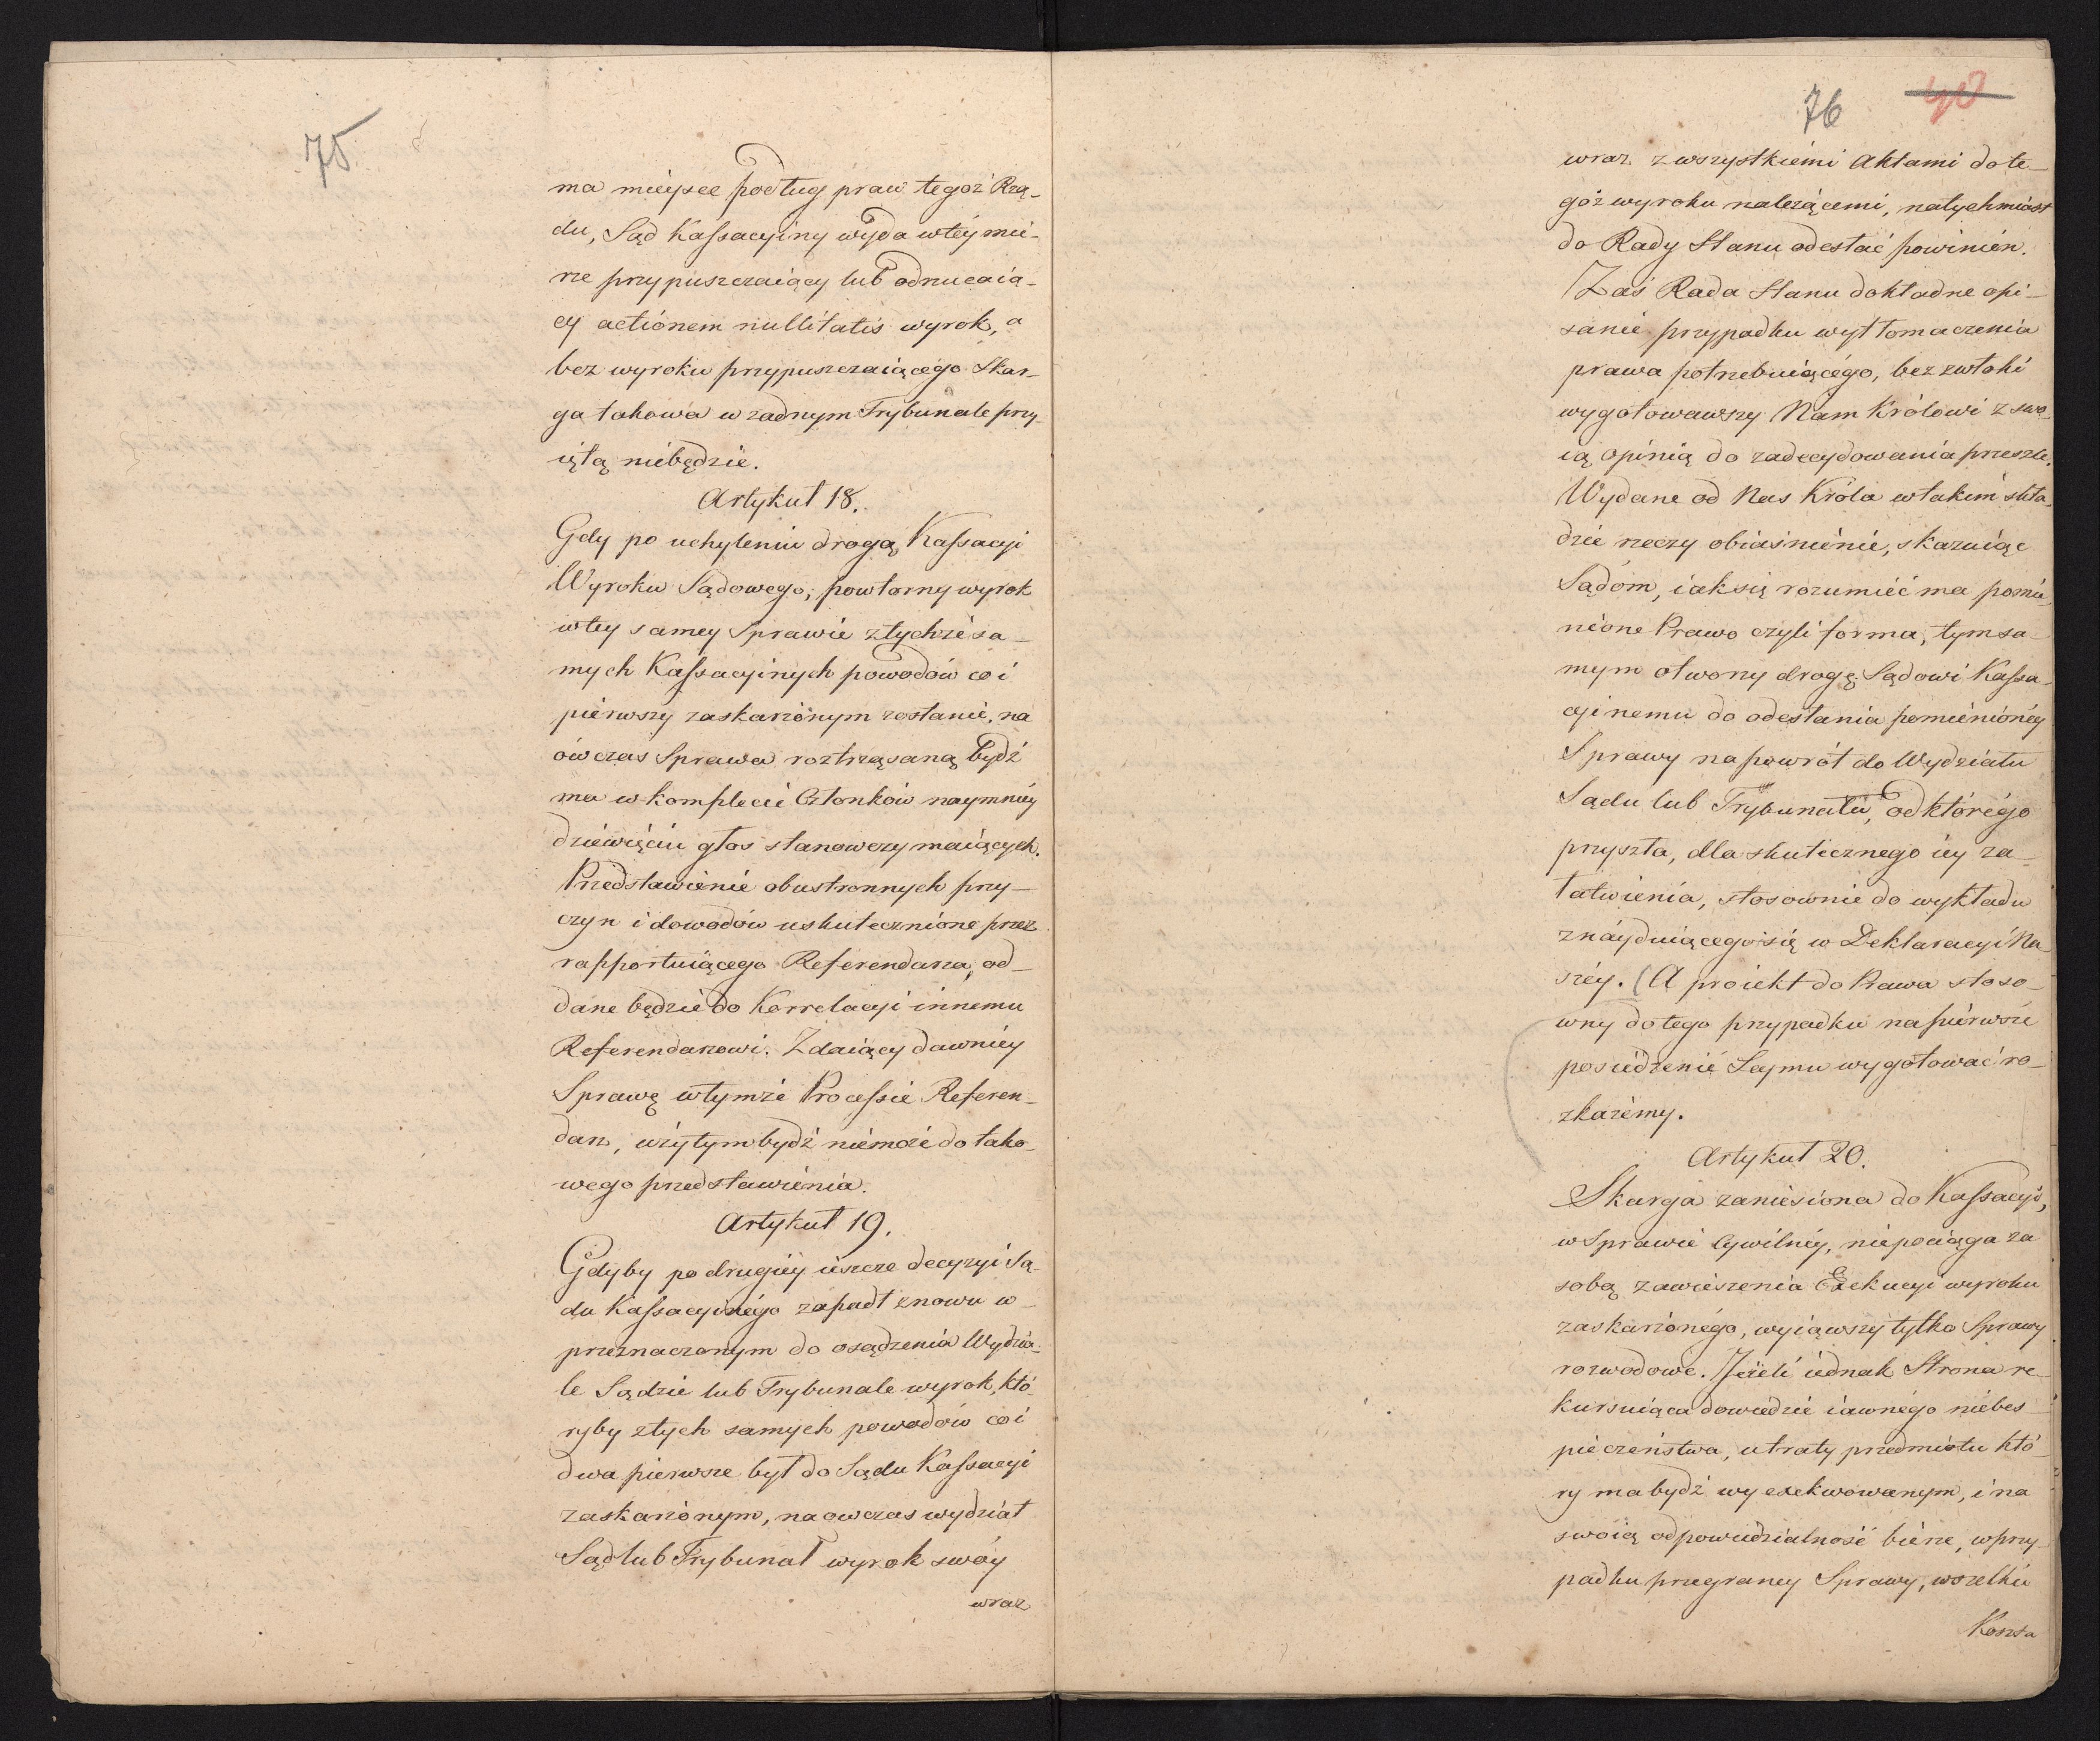 75
ma mieysce podług praw tegoż Rzą-
du, Sąd Kassacyiny wyda w téy mie-
rze przypuszczaiący lub odrzucaią-
cy actionem nullitatis wyrok, a
bez wyroku przypuszczaiącego Skar-
ga takowa w żadnym Trybunale przy-
iętą niebędzie.
Artykuł 18.
Gdy po uchyleniu drogą Kassacyi
Wyroku Sądowego, powtorny wyrok
w tey samey Sprawie z tychże sa-
mych Kassacyinych powodów co i
pierwszy zaskarżonym zostanie, na
ówczas Sprawa roztrząsaną bydź
ma w komplecie Członków naymniéy
dziewięciu głos stanowczy maiących.
Przedstawienie obustronnych przy-
czyn i dowodów uskutecznione przez
rapportuiącego Referendarza, od-
dane będzie do Korrelacyi innemu
Referendarzowi. Zdaiący dawniéy
Sprawę w tymże Processie Referen-
darz, użytym bydź niemoże do tako-
wego przedstawienia.
Artykuł 19.
Gdyby po drugiéy ieszcze decyzyi Są-
du Kassacyinégo zapadł znowu w
przeznaczonym do osądzenia Wydzia-
le Sądzie lub Trybunale wyrok, któ-
ryby z tych samych powodów co i
dwa pierwsze był do Sądu Kassacyi
zaskarżonym, naowczas wydział
Sąd lub Trybunał wyrok swóy
wraz
76 40
wraz z wszystkiemi Aktami do te-
goż wyroku należącemi, natychmiast
do Rady Stanu odesłać powinien.
Zaś Rada Stanu dokładne opi-
sanie przypadku wytłomaczenia
prawa potrzebuiącégo, bez zwłoki
wygotowawszy Nam Królowi z swo-
ią opinią do zadecydowania prześle.
Wydane od Nas Króla w takim skła-
dzie rzeczy obiaśnienie, skazuiąc
Sądom, iak się rozumieć ma pomie-
nione Prawo czyli forma, tym sa-
mym otworzy drogę Sądowi Kassa-
cyinemu do odesłania pomienionéy
Sprawy napowrót do Wydziału
Sądu lub Trybunału, od którégo
przyszła, dla skutecznego iéy za-
łatwienia, stosownie do wykładu
znayduiącego się w Deklaracyi Na-
széy. (A proiekt do Prawa stoso-
wny do tego przypadku na pierwsze
posiedzenie Seymu wygotować ro-
zkażemy.
Artykuł 20.
Skarga zaniesiona do Kassacyi,
w Sprawie Cywilnéy, niepociąga za
sobą zawieszenia Exekucyi wyroku
zaskarżonégo, wyiąwszy tylko Sprawy
rozwodowe. Jeżeli iednak Strona re-
kursuiąca dowiedzie iawnégo niebes-
pieczeństwa, utraty przedmiotu któ-
ry ma bydź wyexekwowanym, i na
swoią odpowiedzialność bierze, w przy-
padku przegraney Sprawy, wszelkie
Koszta